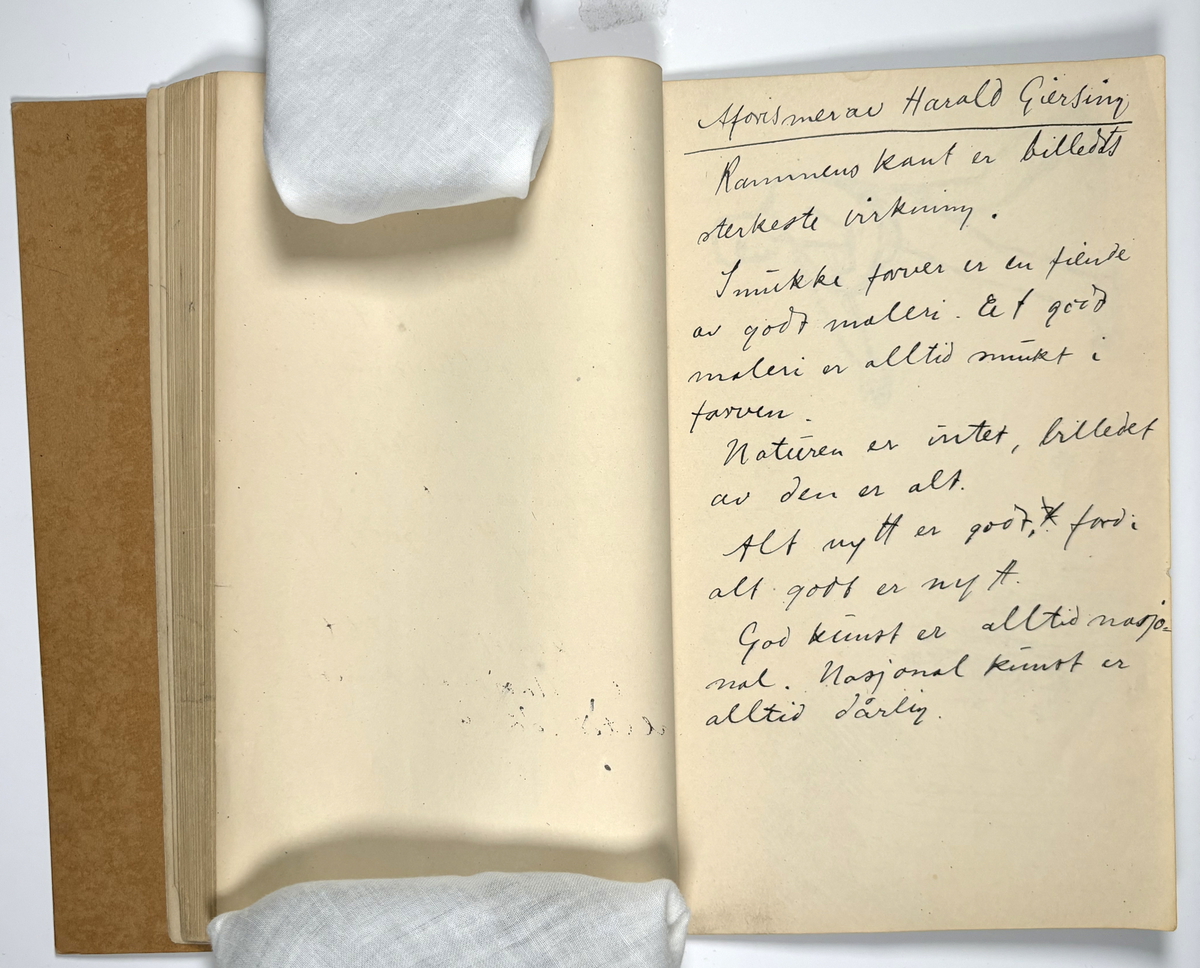 Aforismer av Harald Giersing
Rammens kant er billedets
sterkeste virkning.
Smukke farver er en fiende
av godt maleri. Et godt
maleri er alltid smukt i
farven.
Naturen er intet, billedet
av den er alt.
Alt nytt er godt, fordi
alt godt er nytt.
God kunst er alltid nasjo=
nal. Nasjonal kunst er
alltid dårlig.